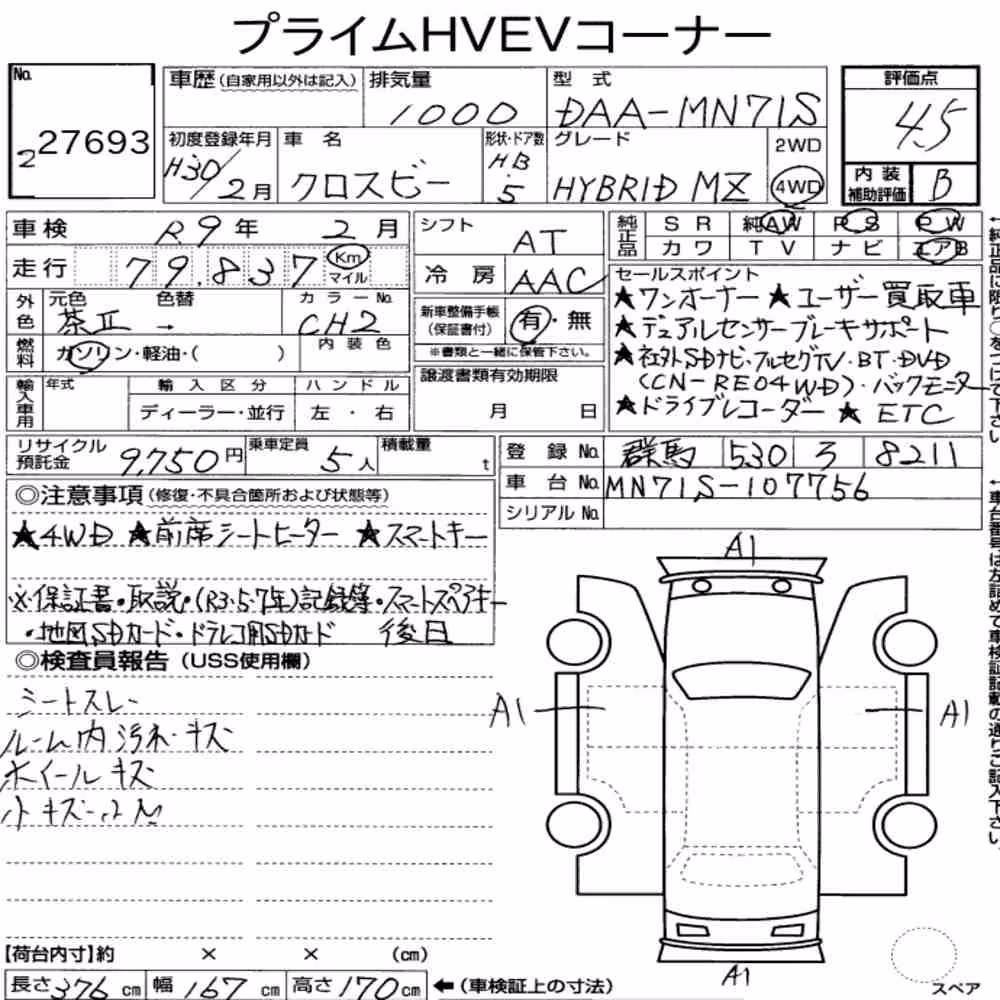 プライムHVEVコーナー
No.
227693
車歴(自家用以外は記入) 排気量 型式
1000 DAA-MN71S
評価点
4.5
初度登録年月 車名 形状・ドア数 グレード 2WD
H30/2月 クロスビー H.B 5 HYBRID MZ 4WD
内装補助評価 B
車検 R9年 2月
走行 79,837 Km マイル
シフト AT
冷房 AAC
純正品 SR 純AW PS PW
カワ TV ナビ エアB
外色 元色 色替 カラーNo.
茶Ⅱ → CH2
内装色
燃料 ガソリン・軽油・( )
新車整備手帳(保証書付) 有・無
※書類と一緒に保管下さい。
セールスポイント
★ワンオーナー ★ユーザー買取車
★デュアルセンサーブレーキサポート
★社外SDナビ・フルセグTV・BT・DVD
(CN-RE04WD)・バックモニター
★ドライブレコーダー ★ETC
輸入車用 年式 輸入区分 ハンドル
ディーラー・並行 左・右
譲渡書類有効期限
月 日
リサイクル預託金 9,750円 乗車定員 5人 積載量 t
登録No. 群馬 530 ヲ 8211
車台No. MN71S-107756
シリアルNo.
◎注意事項(修復・不具合箇所および状態等)
★4WD ★前席シートヒーター ★スマートキー
※保証書・取説・(R3.5.7年)記録簿・スマートスペアキー
・地図SDカード・ドラレコ用SDカード 後日
◎検査員報告(USS使用欄)
シートスレ
ルーム内汚れ・キズ
ホイールキズ
小キズ
A1
A1
A1
A1
【荷台内寸】約 × × (cm)
長さ376cm 幅167cm 高さ170cm ←(車検証上の寸法)
スペア
←純正品に限り○をつけて下さい
←車台番号は左詰めで車検証記載の通りご記入下さい。